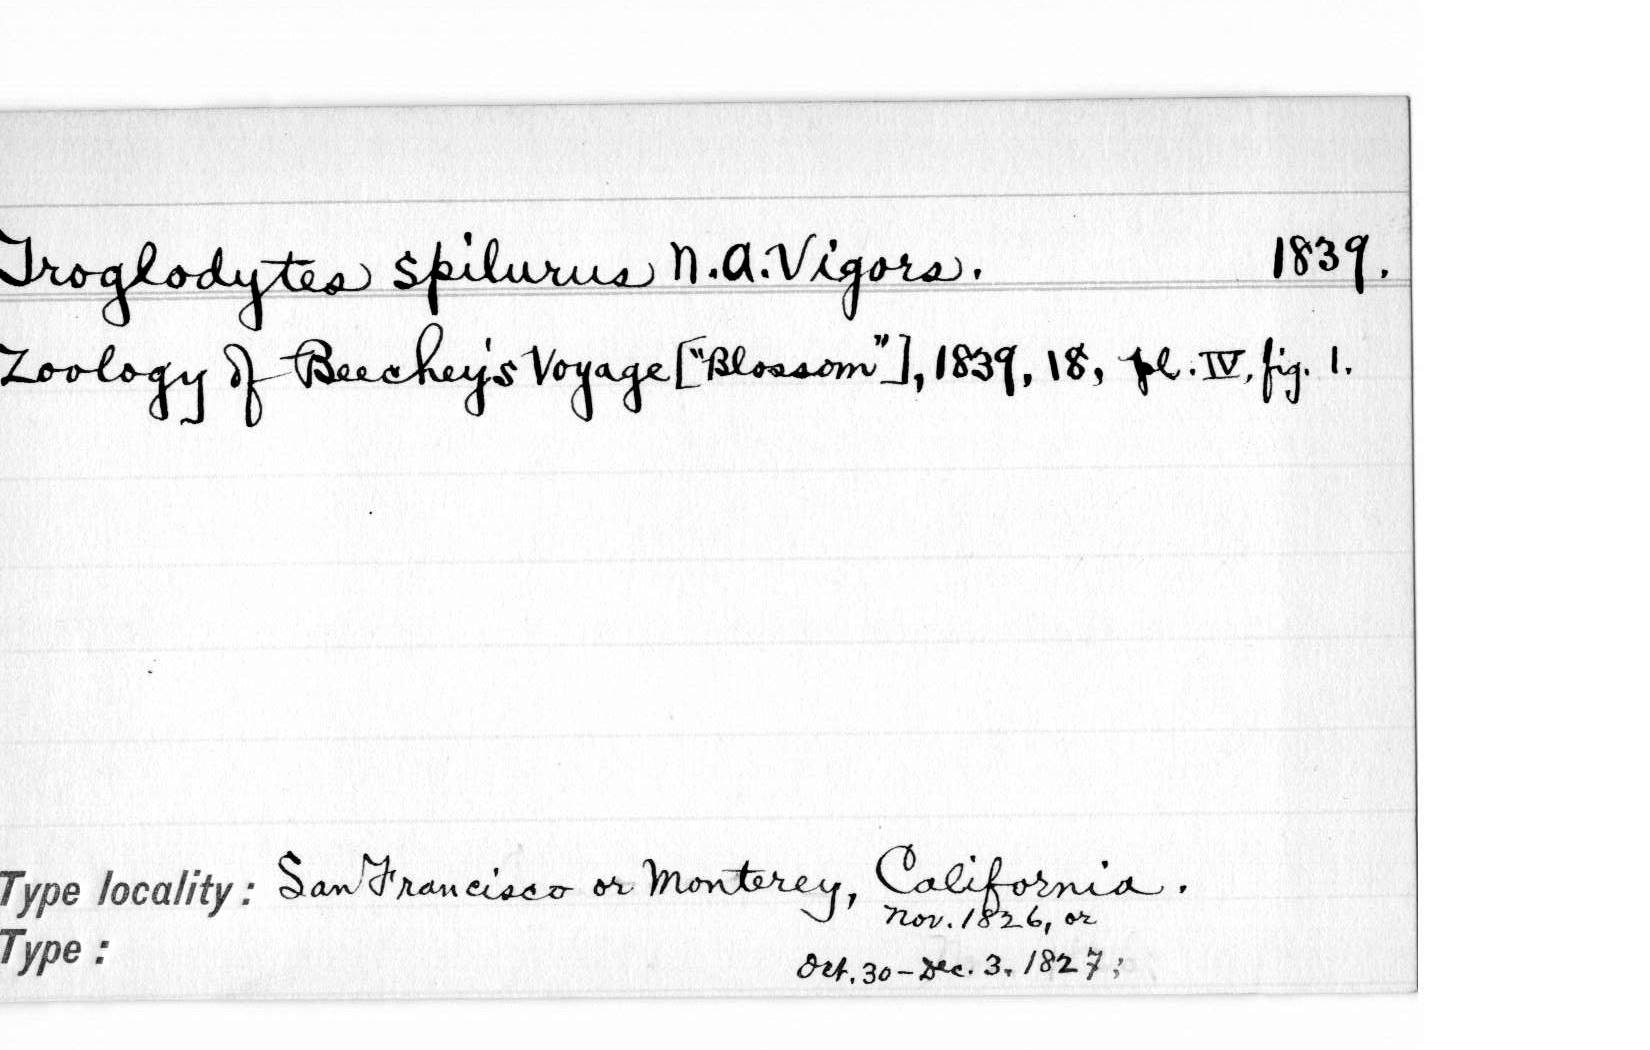 Troglodytes spilurus N.A. Vigors. 1839.
Zoology of Beechey's Voyage ["Blossom"], 1839, 18, pl. IV, fig. 1.
Type locality: San Francisco or Monterey, California.
Nov. 1826, or
Type:
Oct. 30 - Dec. 3. 1827;